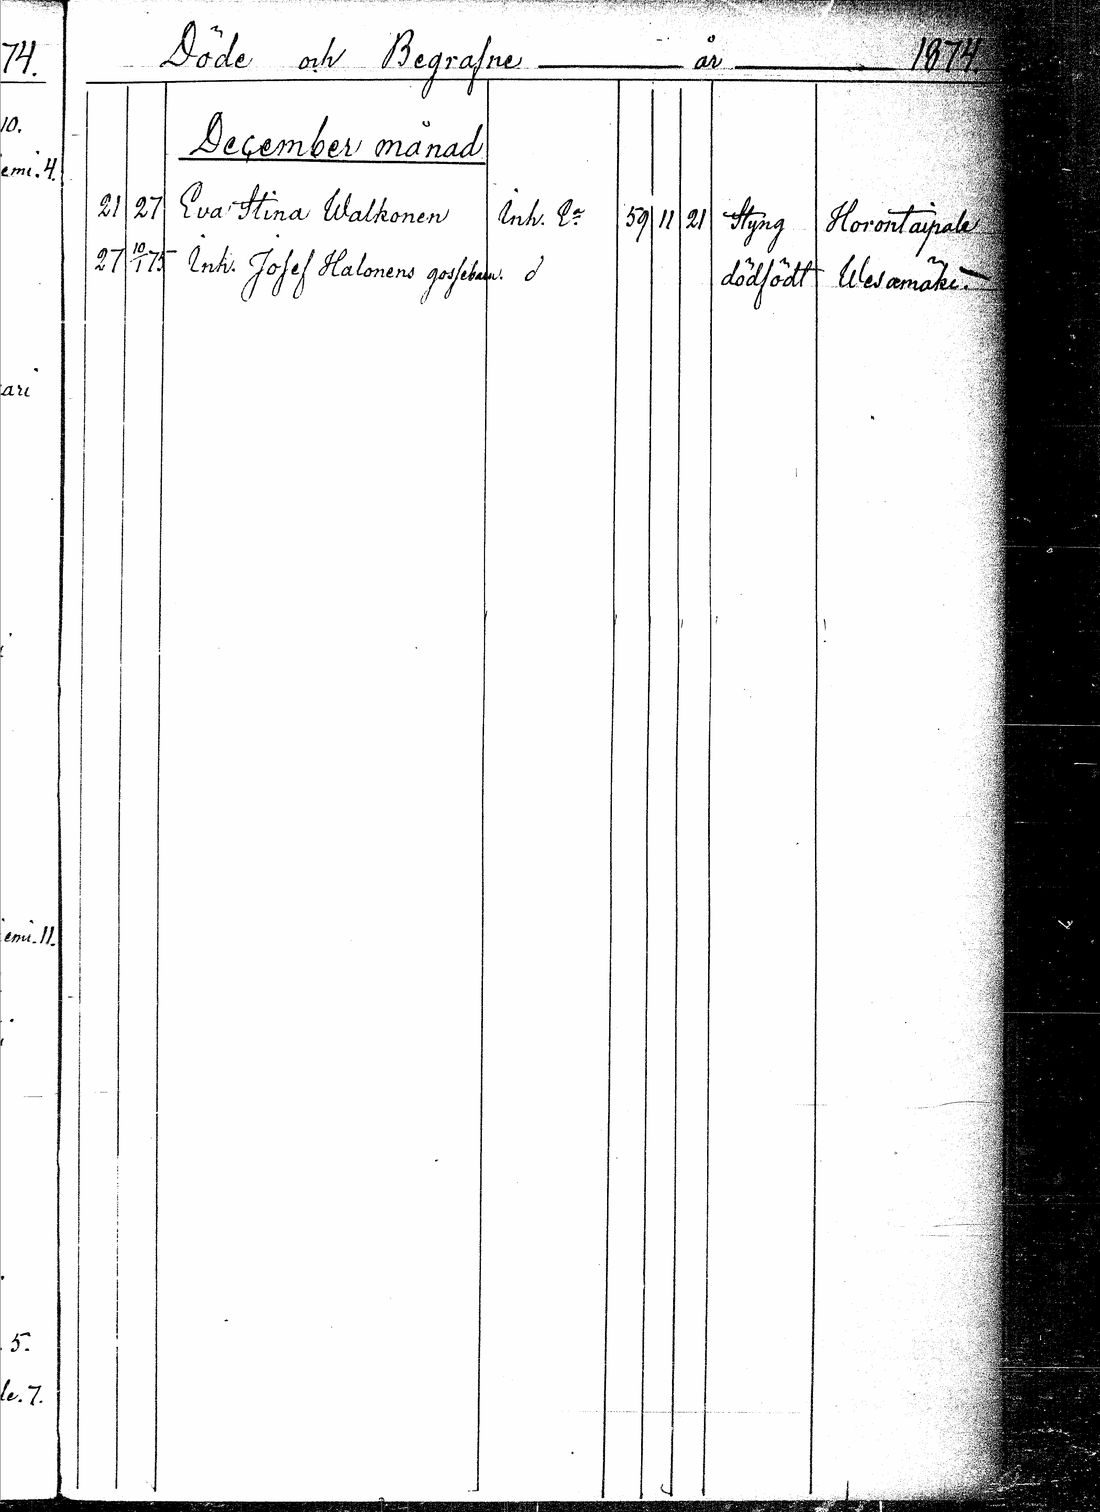 74.
10.
emi. 4.
ari
emi. 11.
5.
le. 7.
Döde och Begrafne år 1874.
December månad
21 27 Eva Stina Walkonen Inh. 59 11 21 Styng Horontaipale
27 10/1 75 Inh. Josef Halonens gossebarn. d dödfödt Wesamäki.